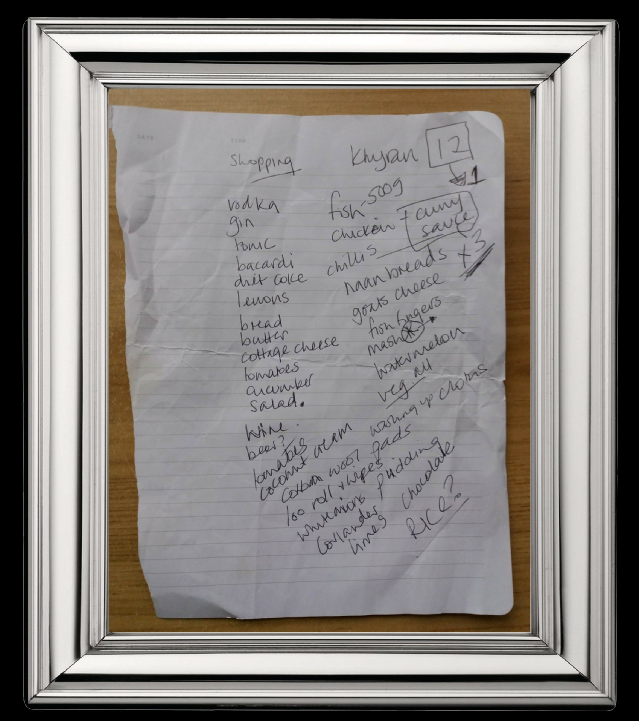 Shopping
vodka
gin
tonic
bacardi
diet coke
lemons
bread
butter
cottage cheese
tomatoes
cucumber
salad.
wine.
beer?
tomatoes
coconut cream
cotton wool pads
loo roll + wipes.
pudding
Coriander
limes
Khyran 12
1
fish - 500g
chicken + curry
sauce
chillis
naan breads x 3
goats cheese
fish fingers
mash
watermelon
veg oil
washing up cloths
chocolate
RICE?